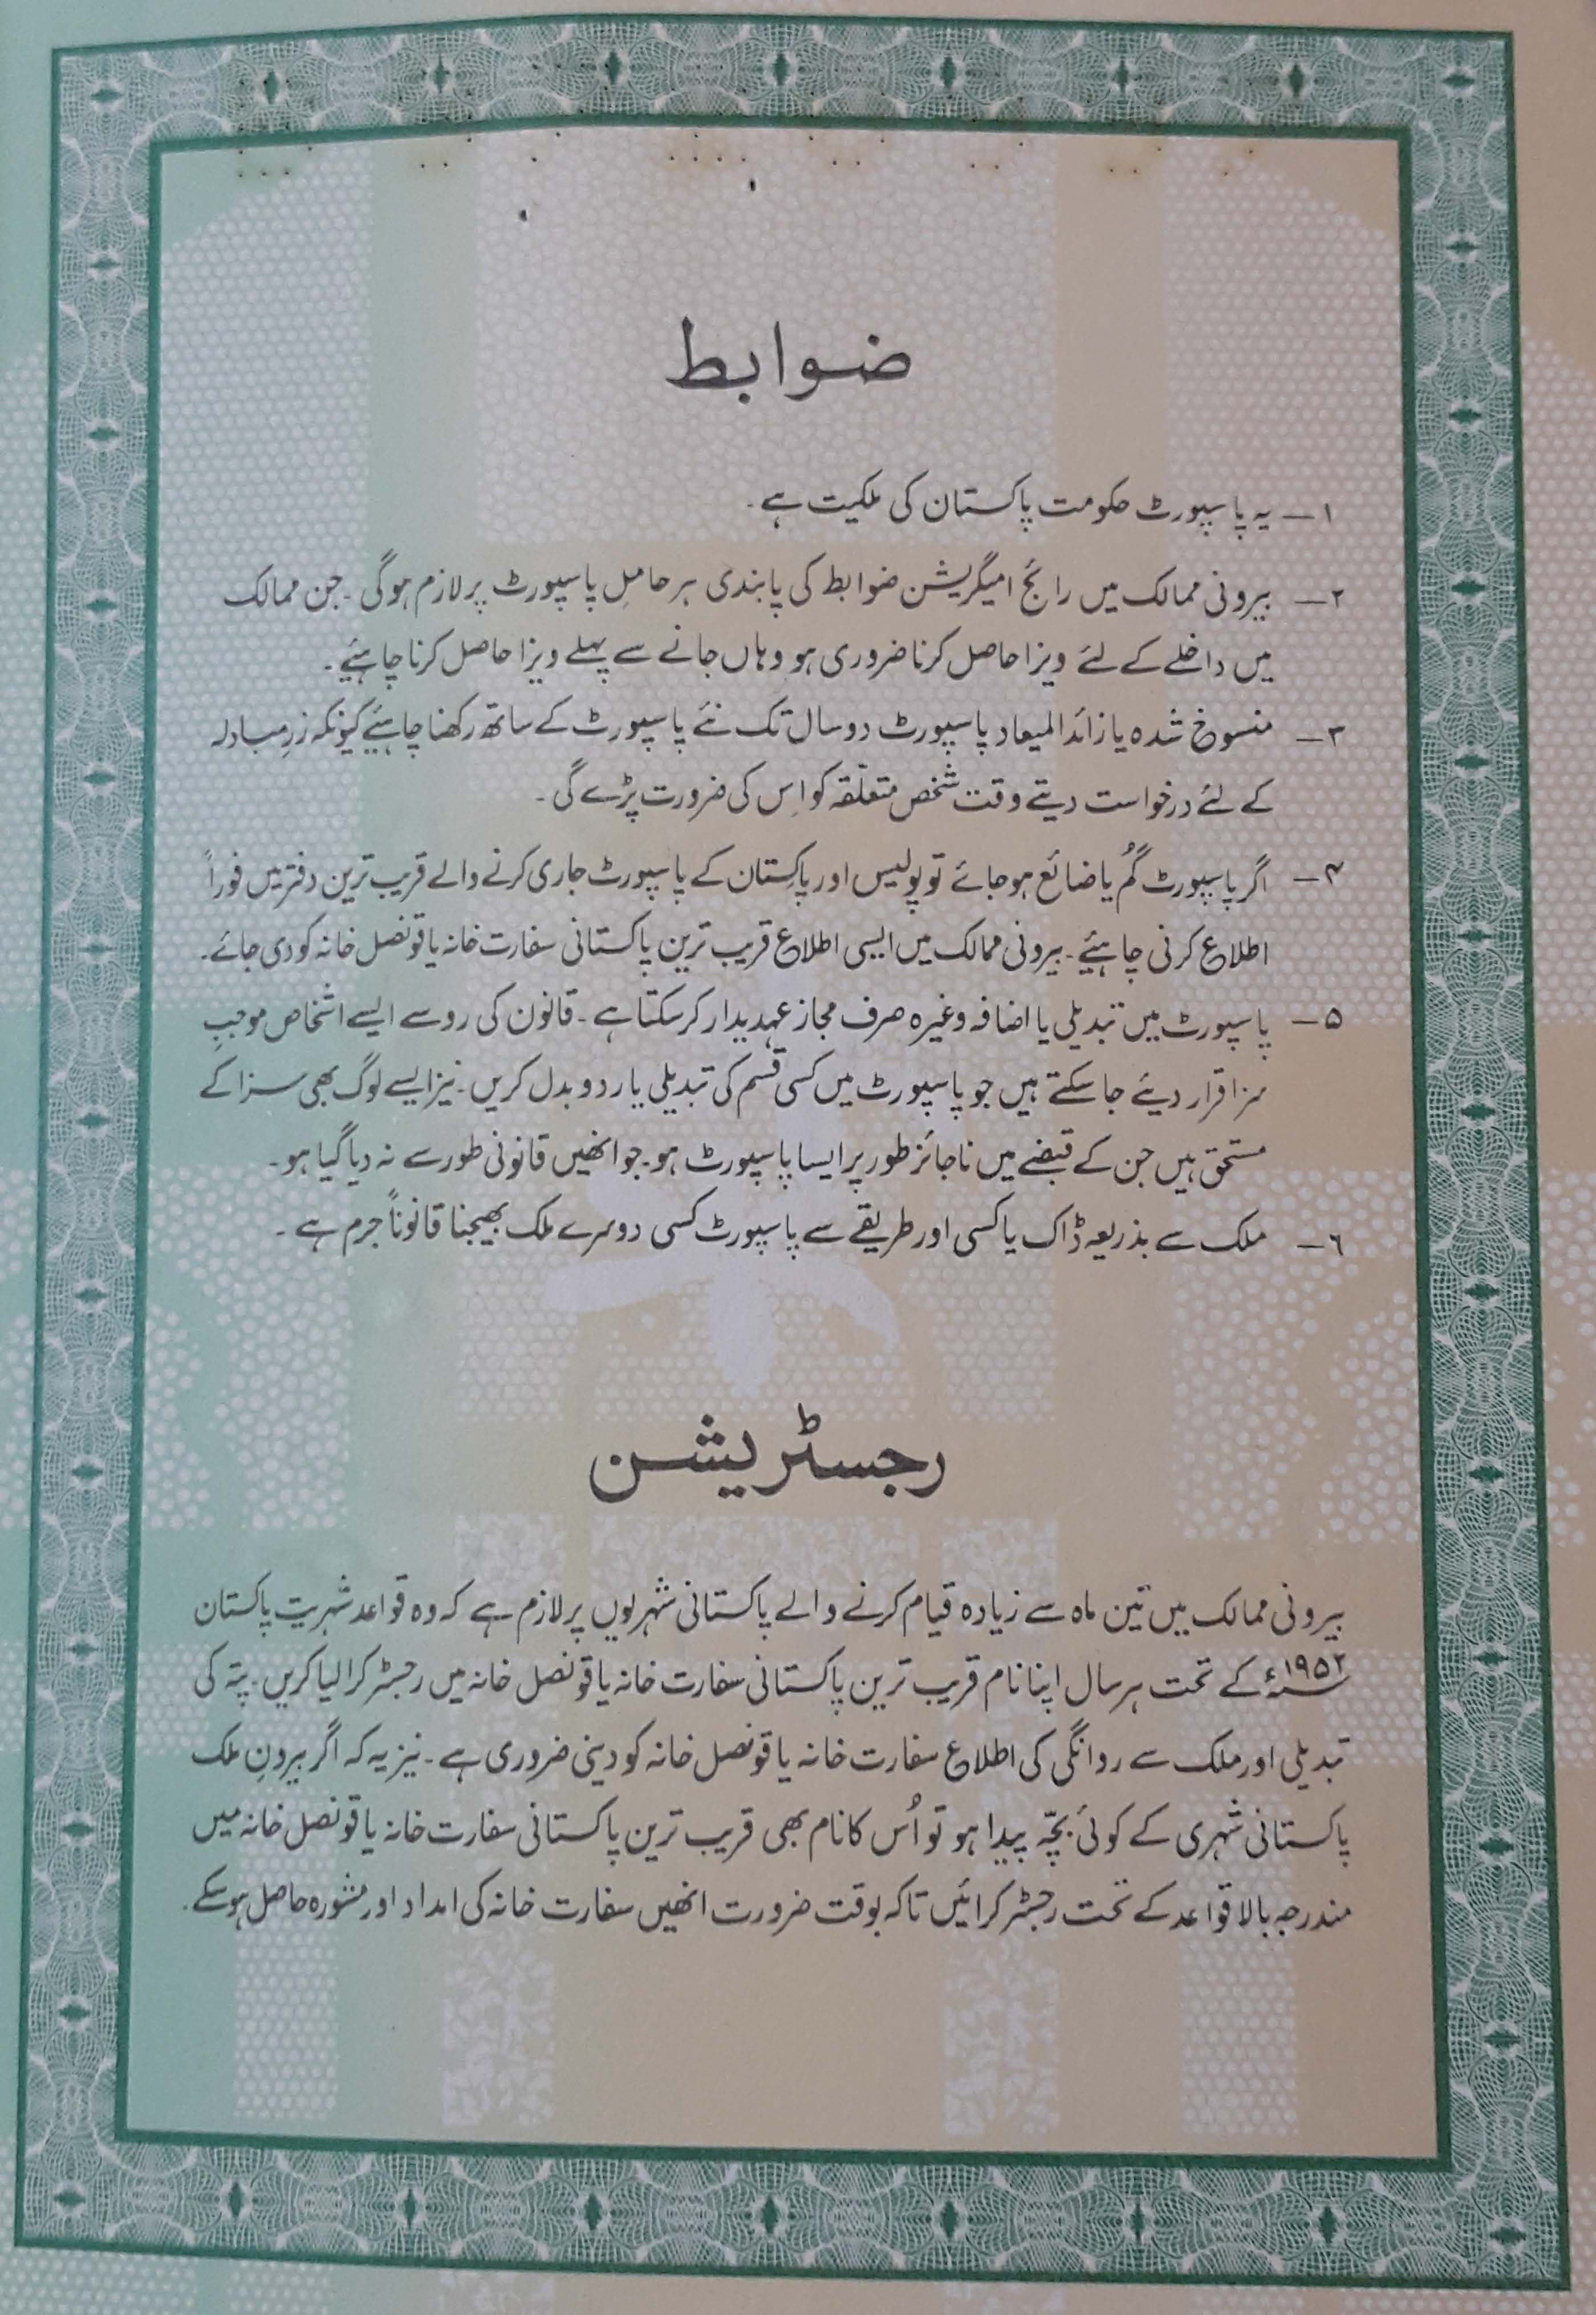 ضوابط
۱— یہ پاسپورٹ حکومت پاکستان کی ملکیت ہے۔
۲— بیرونی ممالک میں رائج امیگریشن ضوابط کی پابندی ہر حاملِ پاسپورٹ پر لازم ہوگی۔ جن ممالک
میں داخلے کے لئے ویزا حاصل کرنا ضروری ہو وہاں جانے سے پہلے ویزا حاصل کرنا چاہئیے۔
۳— منسوخ شدہ یا زائد المیعاد پاسپورٹ دو سال تک نئے پاسپورٹ کے ساتھ رکھنا چاہئیے کیونکہ زرِمبادلہ
کے لئے درخواست دیتے وقت شخص متعلّقہ کو اِس کی ضرورت پڑے گی۔
۴— اگر پاسپورٹ گُم یا ضائع ہو جائے تو پولیس اور پاکِستان کے پاسپورٹ جاری کرنے والے قریب ترین دفتر میں فوراً
اطلاع کرنی چاہئیے۔ بیرونی ممالک میں ایسی اطلاع قریب ترین پاکستانی سفارت خانہ یا قونصل خانہ کو دی جائے۔
۵— پاسپورٹ میں تبدیلی یا اضافہ وغیرہ صرف مجاز عہدیدار کر سکتا ہے۔ قانون کی رو سے ایسے اشخاص موجبِ
سزا قرار دیئے جا سکتے ہیں جو پاسپورٹ میں کسی قسم کی تبدیلی یا ردو بدل کریں۔ نیز ایسے لوگ بھی سزا کے
مستحق ہیں جن کے قبضے میں ناجائز طور پر ایسا پاسپورٹ ہو۔ جو انھیں قانونی طور سے نہ دیا گیا ہو۔
۶— ملک سے بذریعہ ڈاک یا کسی اور طریقے سے پاسپورٹ کسی دوسرے ملک بھیجنا قانوناً جرم ہے۔
رجسٹریشن
بیرونی ممالک میں تین ماہ سے زیادہ قیام کرنے والے پاکستانی شہریوں پر لازم ہے کہ وہ قواعد شہریتِ پاکستان
۱۹۵۲؁ء کے تحت ہر سال اپنا نام قریب ترین پاکستانی سفارت خانہ یا قونصل خانہ میں رجسٹر کرا لیا کریں۔ پتہ کی
تبدیلی اور ملک سے روانگی کی اطلاع سفارت خانہ یا قونصل خانہ کو دینی ضروری ہے۔ نیز یہ کہ اگر بیرونِ ملک
پاکستانی شہری کے کوئی بچّہ پیدا ہو تو اُس کا نام بھی قریب ترین پاکستانی سفارت خانہ یا قونصل خانہ میں
مندرجہ بالا قواعد کے تحت رجسٹر کرائیں تاکہ بوقت ضرورت انھیں سفارت خانہ کی امداد اور مشورہ حاصل ہو سکے۔